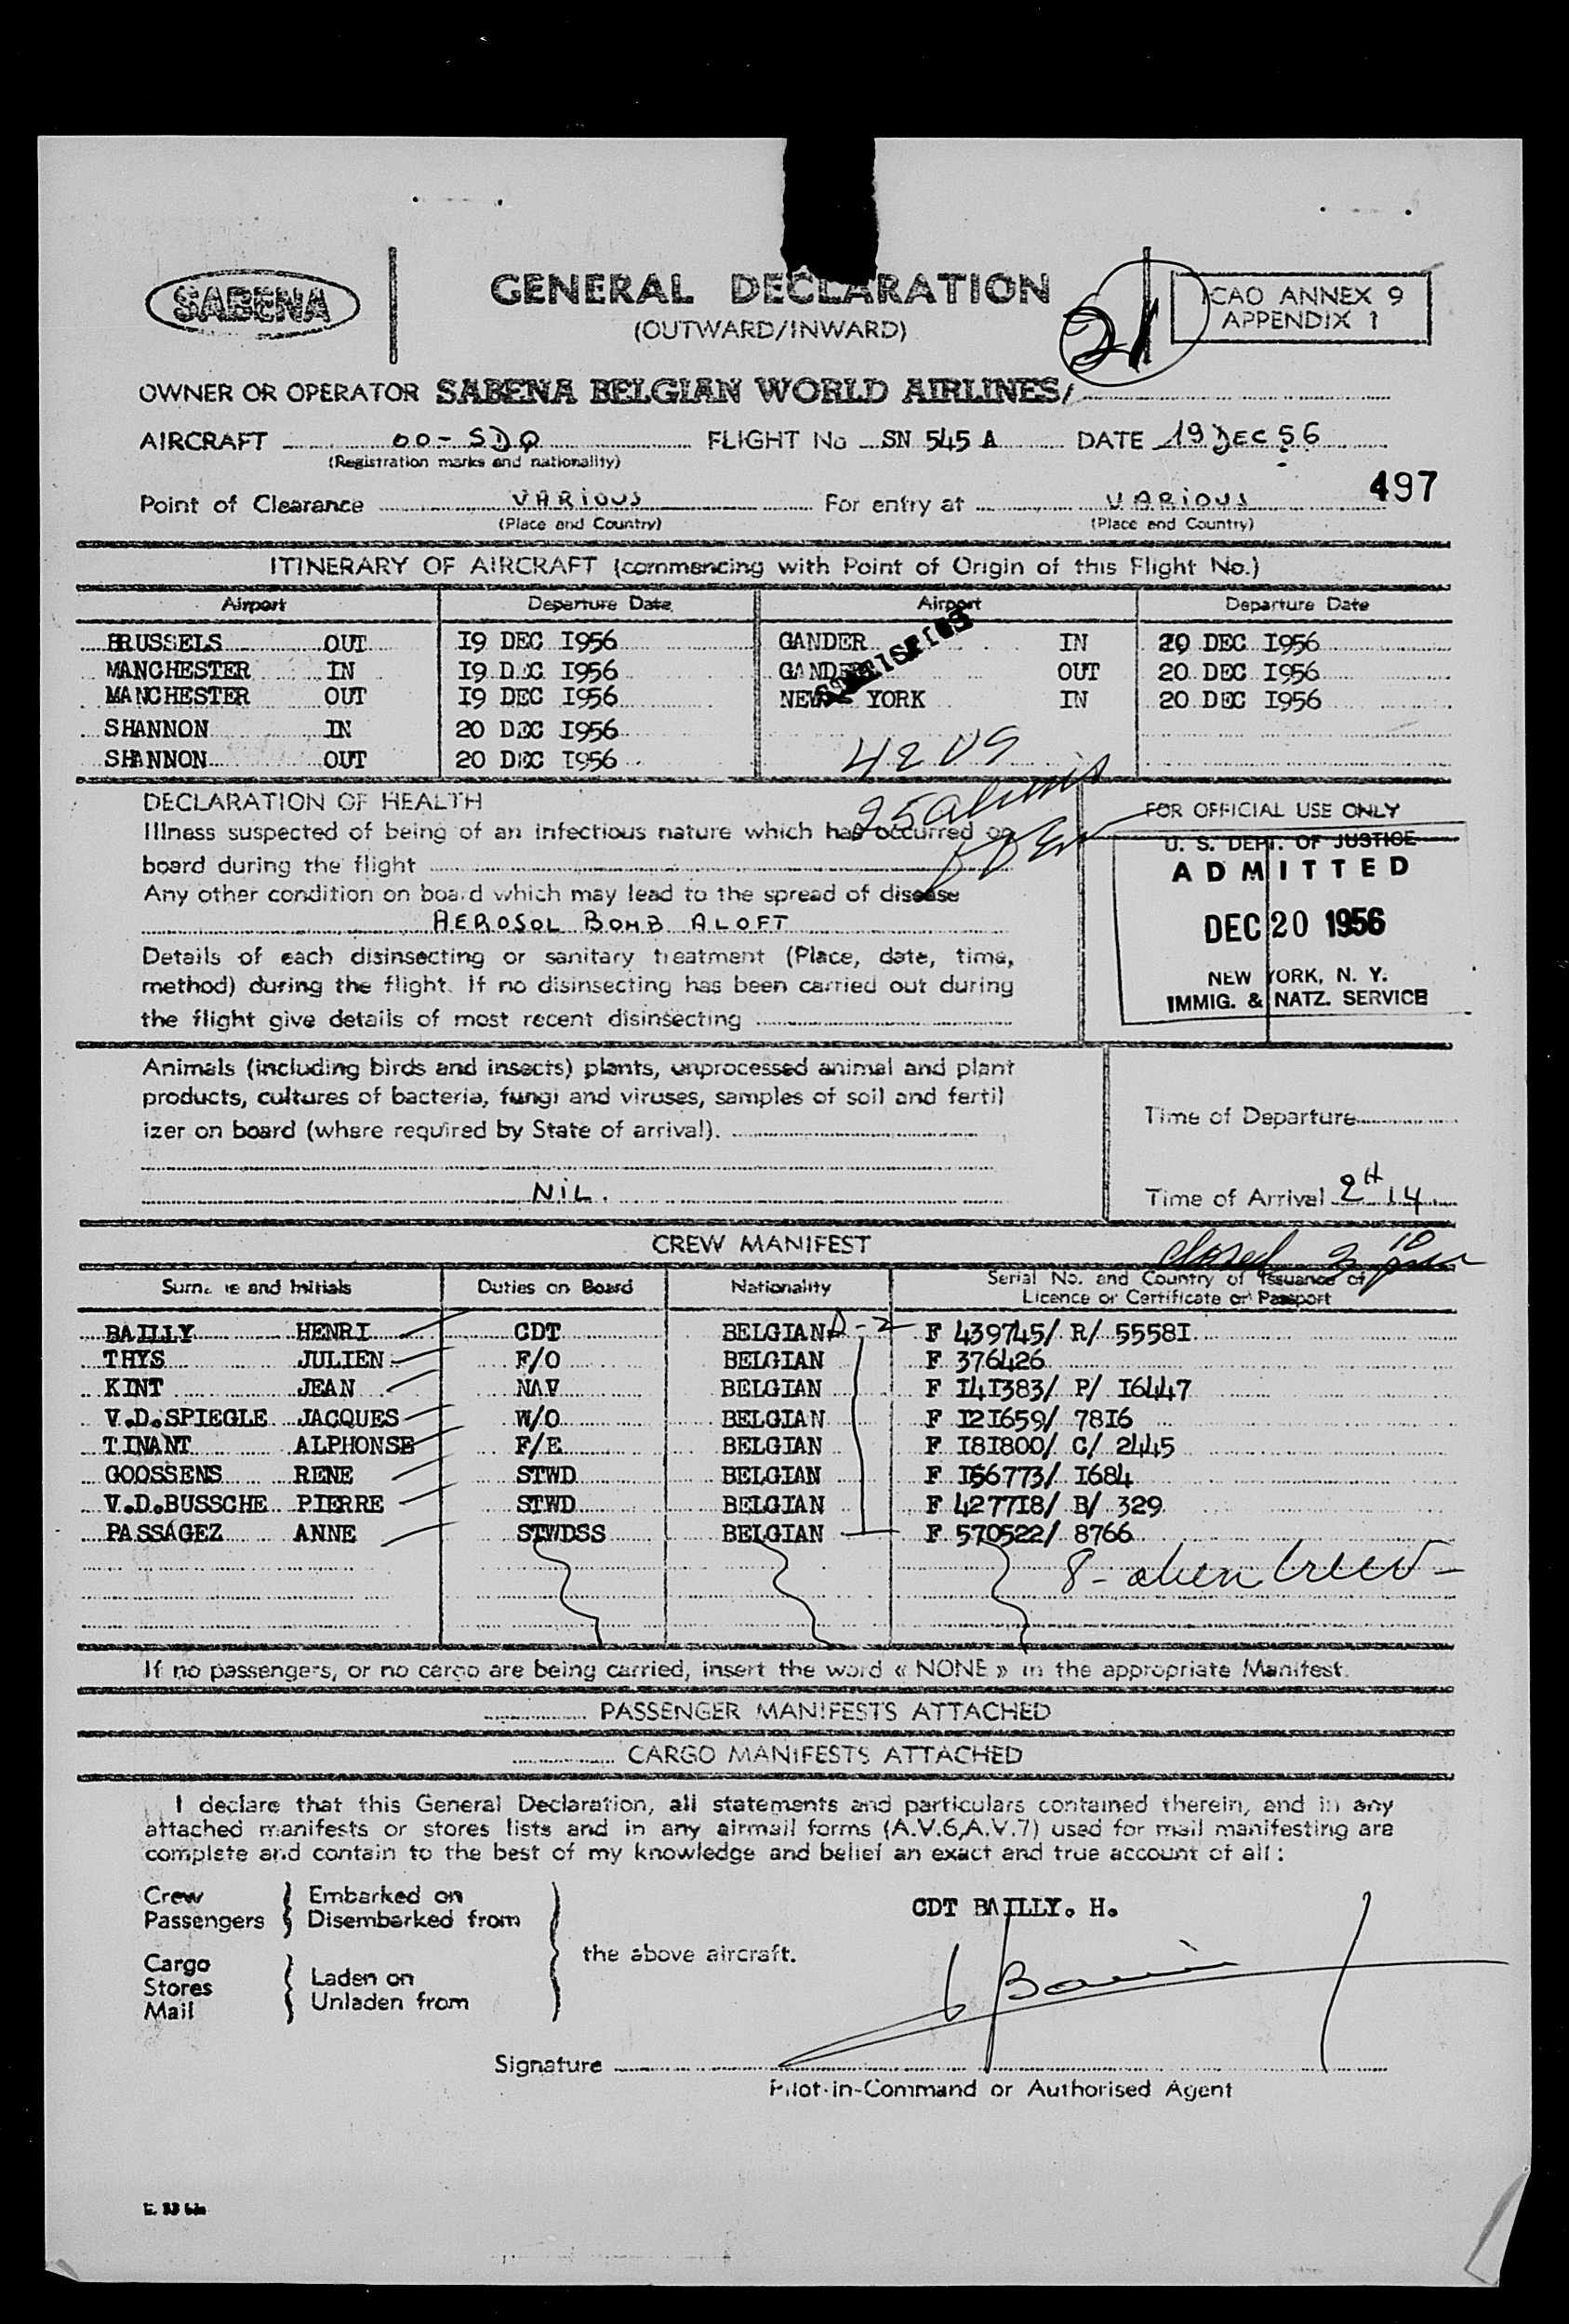 SABENA
GENERAL DECLARATION
(OUTWARD/INWARD)
21
ICAO ANNEX 9
APPENDIX 1
OWNER OR OPERATOR SABENA BELGIAN WORLD AIRLINES/
AIRCRAFT OO-SDQ FLIGHT No SN 545 A DATE 19 DEC 56
(Registration marks and nationality)
497
Point of Clearance VARIOUS For entry at VARIOUS
(Place and Country) (Place and Country)
ITINERARY OF AIRCRAFT (commencing with Point of Origin of this Flight No.)
Airport Departure Date Airport Departure Date
BRUSSELS OUT I9 DEC I956 GANDER IN 20 DEC I956
MANCHESTER IN I9 DEC I956 GANDER OUT 20 DEC I956
MANCHESTER OUT I9 DEC I956 NEW YORK IN 20 DEC I956
SHANNON IN 20 DEC I956
SHANNON OUT 20 DEC I956
42 US
25 aliens
DECLARATION OF HEALTH
Illness suspected of being of an infectious nature which has occurred on
board during the flight
Any other condition on board which may lead to the spread of disease
AEROSOL BOMB ALOFT
Details of each disinsecting or sanitary treatment (Place, date, time,
method) during the flight. If no disinsecting has been carried out during
the flight give details of most recent disinsecting
FOR OFFICIAL USE ONLY
U. S. DEPT. OF JUSTICE
ADMITTED
DEC 20 1956
NEW YORK, N. Y.
IMMIG. & NATZ. SERVICE
Animals (including birds and insects) plants, unprocessed animal and plant
products, cultures of bacteria, fungi and viruses, samples of soil and fertil
izer on board (where required by State of arrival).
NIL.
Time of Departure
Time of Arrival 2H 14
CREW MANIFEST
closed 3 10 pm
Surname and Initials Duties on Board Nationality Serial No. and Country of Issuance of
Licence or Certificate or Passport
BAILLY HENRI CDT BELGIAN D-2 F 439745/ R/ 5558I
THYS JULIEN F/O BELGIAN F 376426
KINT JEAN NAV BELGIAN F I4I383/ P/ I6447
V.D.SPIEGLE JACQUES W/O BELGIAN F I2I659/ 78I6
TINANT ALPHONSE F/E BELGIAN F I8I800/ C/ 2445
GOOSSENS RENE STWD BELGIAN F I56773/ I684
V.D.BUSSCHE PIERRE STWD BELGIAN F 4277I8/ B/ 329
PASSAGEZ ANNE STWDSS BELGIAN F 570522/ 8766
8 - alien crew -
If no passengers, or no cargo are being carried, insert the word « NONE » in the appropriate Manifest.
PASSENGER MANIFESTS ATTACHED
CARGO MANIFESTS ATTACHED
I declare that this General Declaration, all statements and particulars contained therein, and in any
attached manifests or stores lists and in any airmail forms (A.V.6,A.V.7) used for mail manifesting are
complete and contain to the best of my knowledge and belief an exact and true account of all :
Crew Embarked on
Passengers Disembarked from
the above aircraft.
Cargo
Stores Laden on
Mail Unladen from
CDT BAILLY. H.
Signature
Pilot-in-Command or Authorised Agent